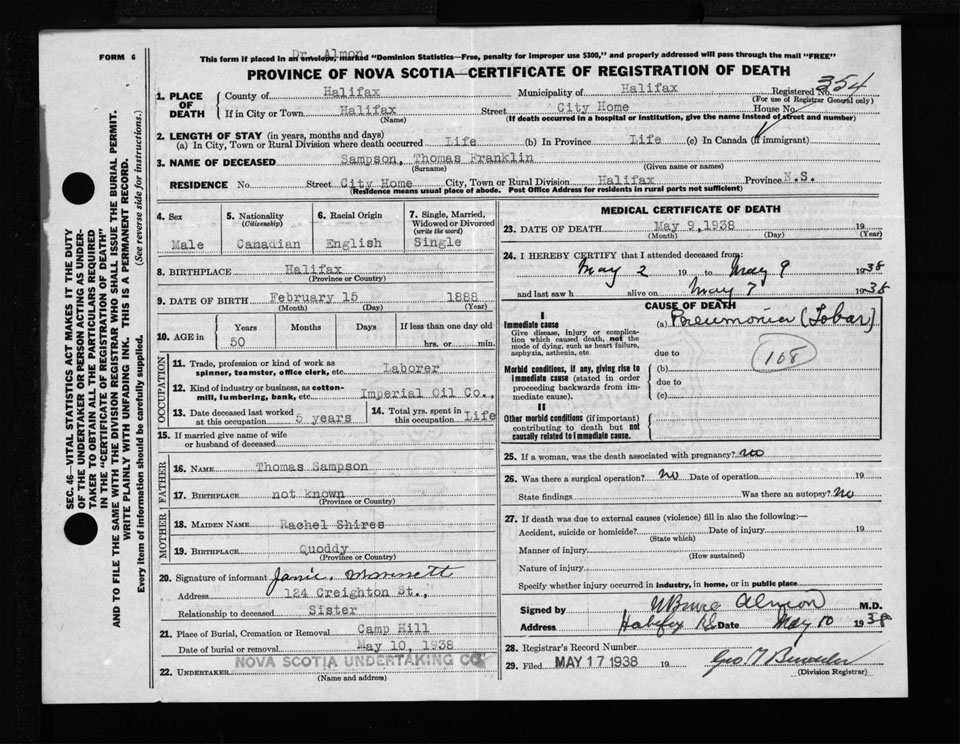 FORM 6
Dr. Almon
This form if placed in an envelope, marked "Dominion Statistics—Free, penalty for improper use $300," and properly addressed will pass through the mail "FREE"
PROVINCE OF NOVA SCOTIA—CERTIFICATE OF REGISTRATION OF DEATH
SEC. 46—VITAL STATISTICS ACT MAKES IT THE DUTY
OF THE UNDERTAKER OR PERSON ACTING AS UNDER-
TAKER TO OBTAIN ALL THE PARTICULARS REQUIRED
IN THE "CERTIFICATE OF REGISTRATION OF DEATH"
AND TO FILE THE SAME WITH THE DIVISION REGISTRAR WHO SHALL ISSUE THE BURIAL PERMIT.
WRITE PLAINLY WITH UNFADING INK. THIS IS A PERMANENT RECORD.
Every item of information should be carefully supplied. (See reverse side for instructions.)
1. PLACE OF DEATH
County of Halifax Municipality of Halifax Registered No. 354
(For use of Registrar General only)
If in City or Town Halifax Street City Home House No.
(Name) (If death occurred in a hospital or institution, give the name instead of street and number)
2. LENGTH OF STAY (in years, months and days)
(a) In City, Town or Rural Division where death occurred Life (b) In Province Life (c) In Canada (if immigrant)
3. NAME OF DECEASED Sampson, Thomas Franklin
(Surname) (Given name or names)
RESIDENCE No. Street City Home City, Town or Rural Division Halifax Province N.S.
(Residence means usual place of abode. Post Office Address for residents in rural parts not sufficient)
4. Sex Male
5. Nationality (Citizenship) Canadian
6. Racial Origin English
7. Single, Married, Widowed or Divorced (write the word) Single
8. BIRTHPLACE Halifax
(Province or Country)
9. DATE OF BIRTH February 15 1888
(Month) (Day) (Year)
10. AGE in Years Months Days If less than one day old
50 hrs. or min.
OCCUPATION
11. Trade, profession or kind of work as
spinner, teamster, office clerk, etc. Laborer
12. Kind of industry or business, as cotton-
mill, lumbering, bank, etc. Imperial Oil Co.,
13. Date deceased last worked
at this occupation 5 years
14. Total yrs. spent in
this occupation Life
15. If married give name of wife
or husband of deceased
FATHER
16. NAME Thomas Sampson
17. BIRTHPLACE not known
(Province or Country)
MOTHER
18. MAIDEN NAME Rachel Shires
19. BIRTHPLACE Quoddy
(Province or Country)
20. Signature of informant
Address 124 Creighton St.,
Relationship to deceased Sister
21. Place of Burial, Cremation or Removal Camp Hill
Date of burial or removal May 10, 1938
22. UNDERTAKER NOVA SCOTIA UNDERTAKING CO.
(Name and address)
MEDICAL CERTIFICATE OF DEATH
23. DATE OF DEATH May 9, 1938 19
(Month) (Day) (Year)
24. I HEREBY CERTIFY that I attended deceased from:
May 2 19 to May 9 1938
and last saw h alive on May 7 1938
CAUSE OF DEATH
I
Immediate cause (a) Pneumonia (Lobar)
Give disease, injury or complica-
tion which caused death, not the
mode of dying, such as heart failure,
asphyxia, asthenia, etc.
due to
108
Morbid conditions, if any, giving rise to
immediate cause (stated in order
proceeding backwards from im-
mediate cause).
(b)
due to
(c)
II
Other morbid conditions (if important)
contributing to death but not
causally related to immediate cause.
25. If a woman, was the death associated with pregnancy? no
26. Was there a surgical operation? no Date of operation 19
State findings Was there an autopsy? No
27. If death was due to external causes (violence) fill in also the following:—
Accident, suicide or homicide? Date of injury 19
(State which)
Manner of injury
(How sustained)
Nature of injury
Specify whether injury occurred in industry, in home, or in public place
Signed by Almon M.D.
Address Halifax NS Date May 10 1938
28. Registrar's Record Number
29. Filed MAY 17 1938 19
(Division Registrar)